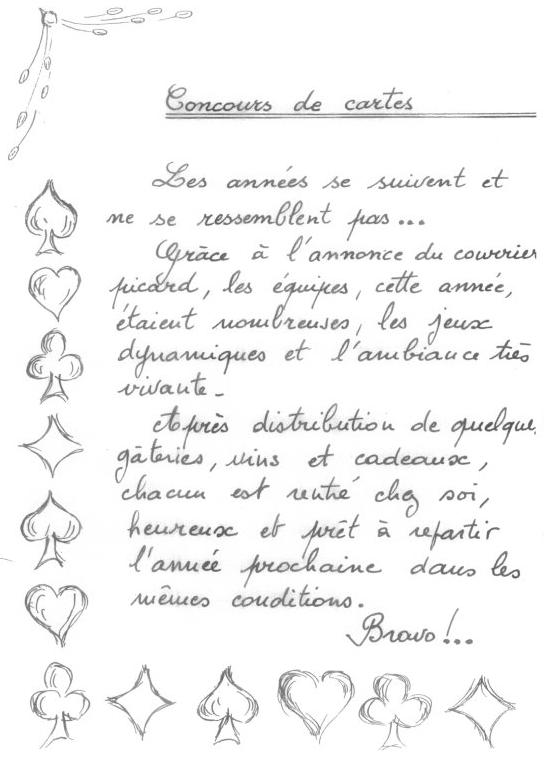 Concours de cartes
Les années se suivent et
ne se ressemblent pas...
Grâce à l'annonce du courrier
picard, les équipes, cette année,
étaient nombreuses, les jeux
dynamiques et l'ambiance très
vivante.
Après distribution de quelque
gâteries, vins et cadeaux,
chacun est rentré chez soi,
heureux et prêt à repartir
l'année prochaine dans les
mêmes conditions.
Bravo!...